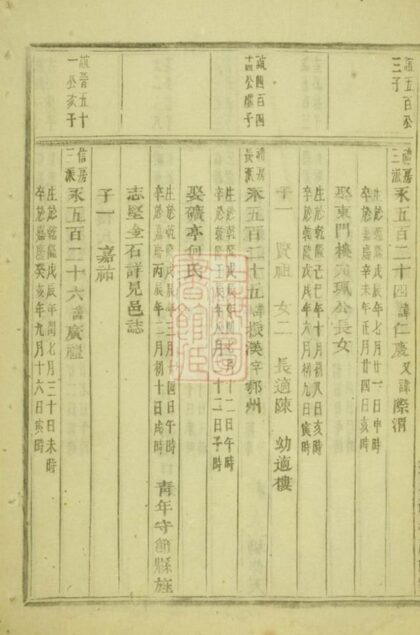 五百公
三子
禮房
三派
永五百二十四諱仁慶又諱際渭
生於乾隆戊辰年七月廿一日申時
卒於嘉慶辛未年正月廿四日亥時
娶東門樓珮公長女
生於乾隆己巳年十月初八日亥時
卒於嘉慶戊辰年六月初九日戌時
子一 賢祖 女二 長適陳 幼適樓
四百四
十四公繼子
禮房
長派
永五百二十五諱振漢字郁州
生於乾隆戊辰年月十二日午時
卒於乾隆壬辰年八月十二日子時
娶礦亭何氏
生於乾隆戊辰年
卒於嘉慶丙辰年二月初十日戌時
青年守節縣旌
志堅金石詳見邑誌
子一 嘉祐
晉五十
一公次子
信房
三派
永五百二十六諱廣禮
生於乾隆戊辰年閏七月三十日未時
卒於嘉慶癸亥年九月十六日寅時